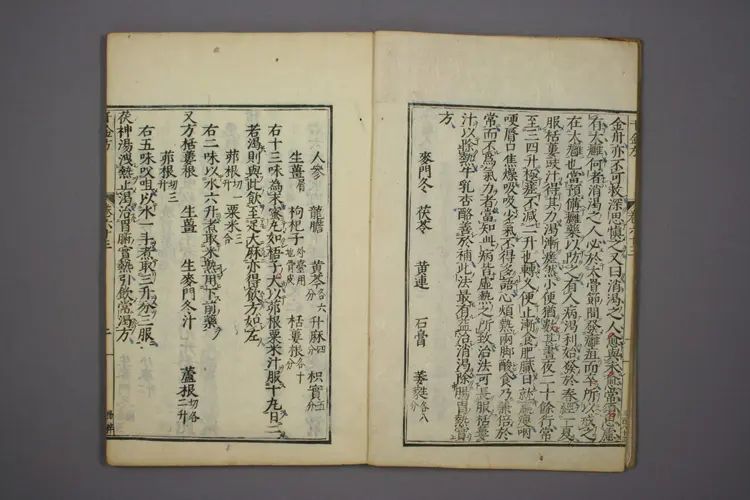 金丹亦不可救深思慎之又曰消渴之人愈與未愈常須思慮
有大癰何者消渴之人必於大骨節間發癰疽而卒所以戒之
在大癰也當預備癰藥以防之有人病渴利始發於春經一夏
服栝蔞豉汁得其力渴漸瘥然小便猶數甚晝夜二十餘行常
至三四升極瘥不減二升也轉久便止漸食肥膩日就羸瘦咽
喉唇口焦燥吸吸少氣不得多語心煩熱兩脚酸食乃兼倍於
常而不為氣力者當知此病皆虛熱之所致治法可長服栝蔞
汁以除熱牛乳杏酪善於補此法最有益治消渴除腸胃熱實
方
麥門冬 茯苓 黃連 石膏 萎蕤各八分
人參 龍膽 黃芩各六分 升麻四分 枳實五分
生薑屑 枸杞子外臺用地骨皮 栝蔞根各十分
右十三味為末蜜丸如梧子大以茆根粟米汁服十丸日二
若渴則與此飲至足大麻亦得飲方如左
茆根切一升 粟米三合
右二味以水六升煮取米熟用下前藥
又方栝蔞根 生薑 生麥門冬汁 蘆根切各二升
茆根切三升
右五味㕮咀以水一斗煮取三升分三服
茯神湯洩熱止渴治胃腑實熱引飲常渴方
千金方
卷六十三
二